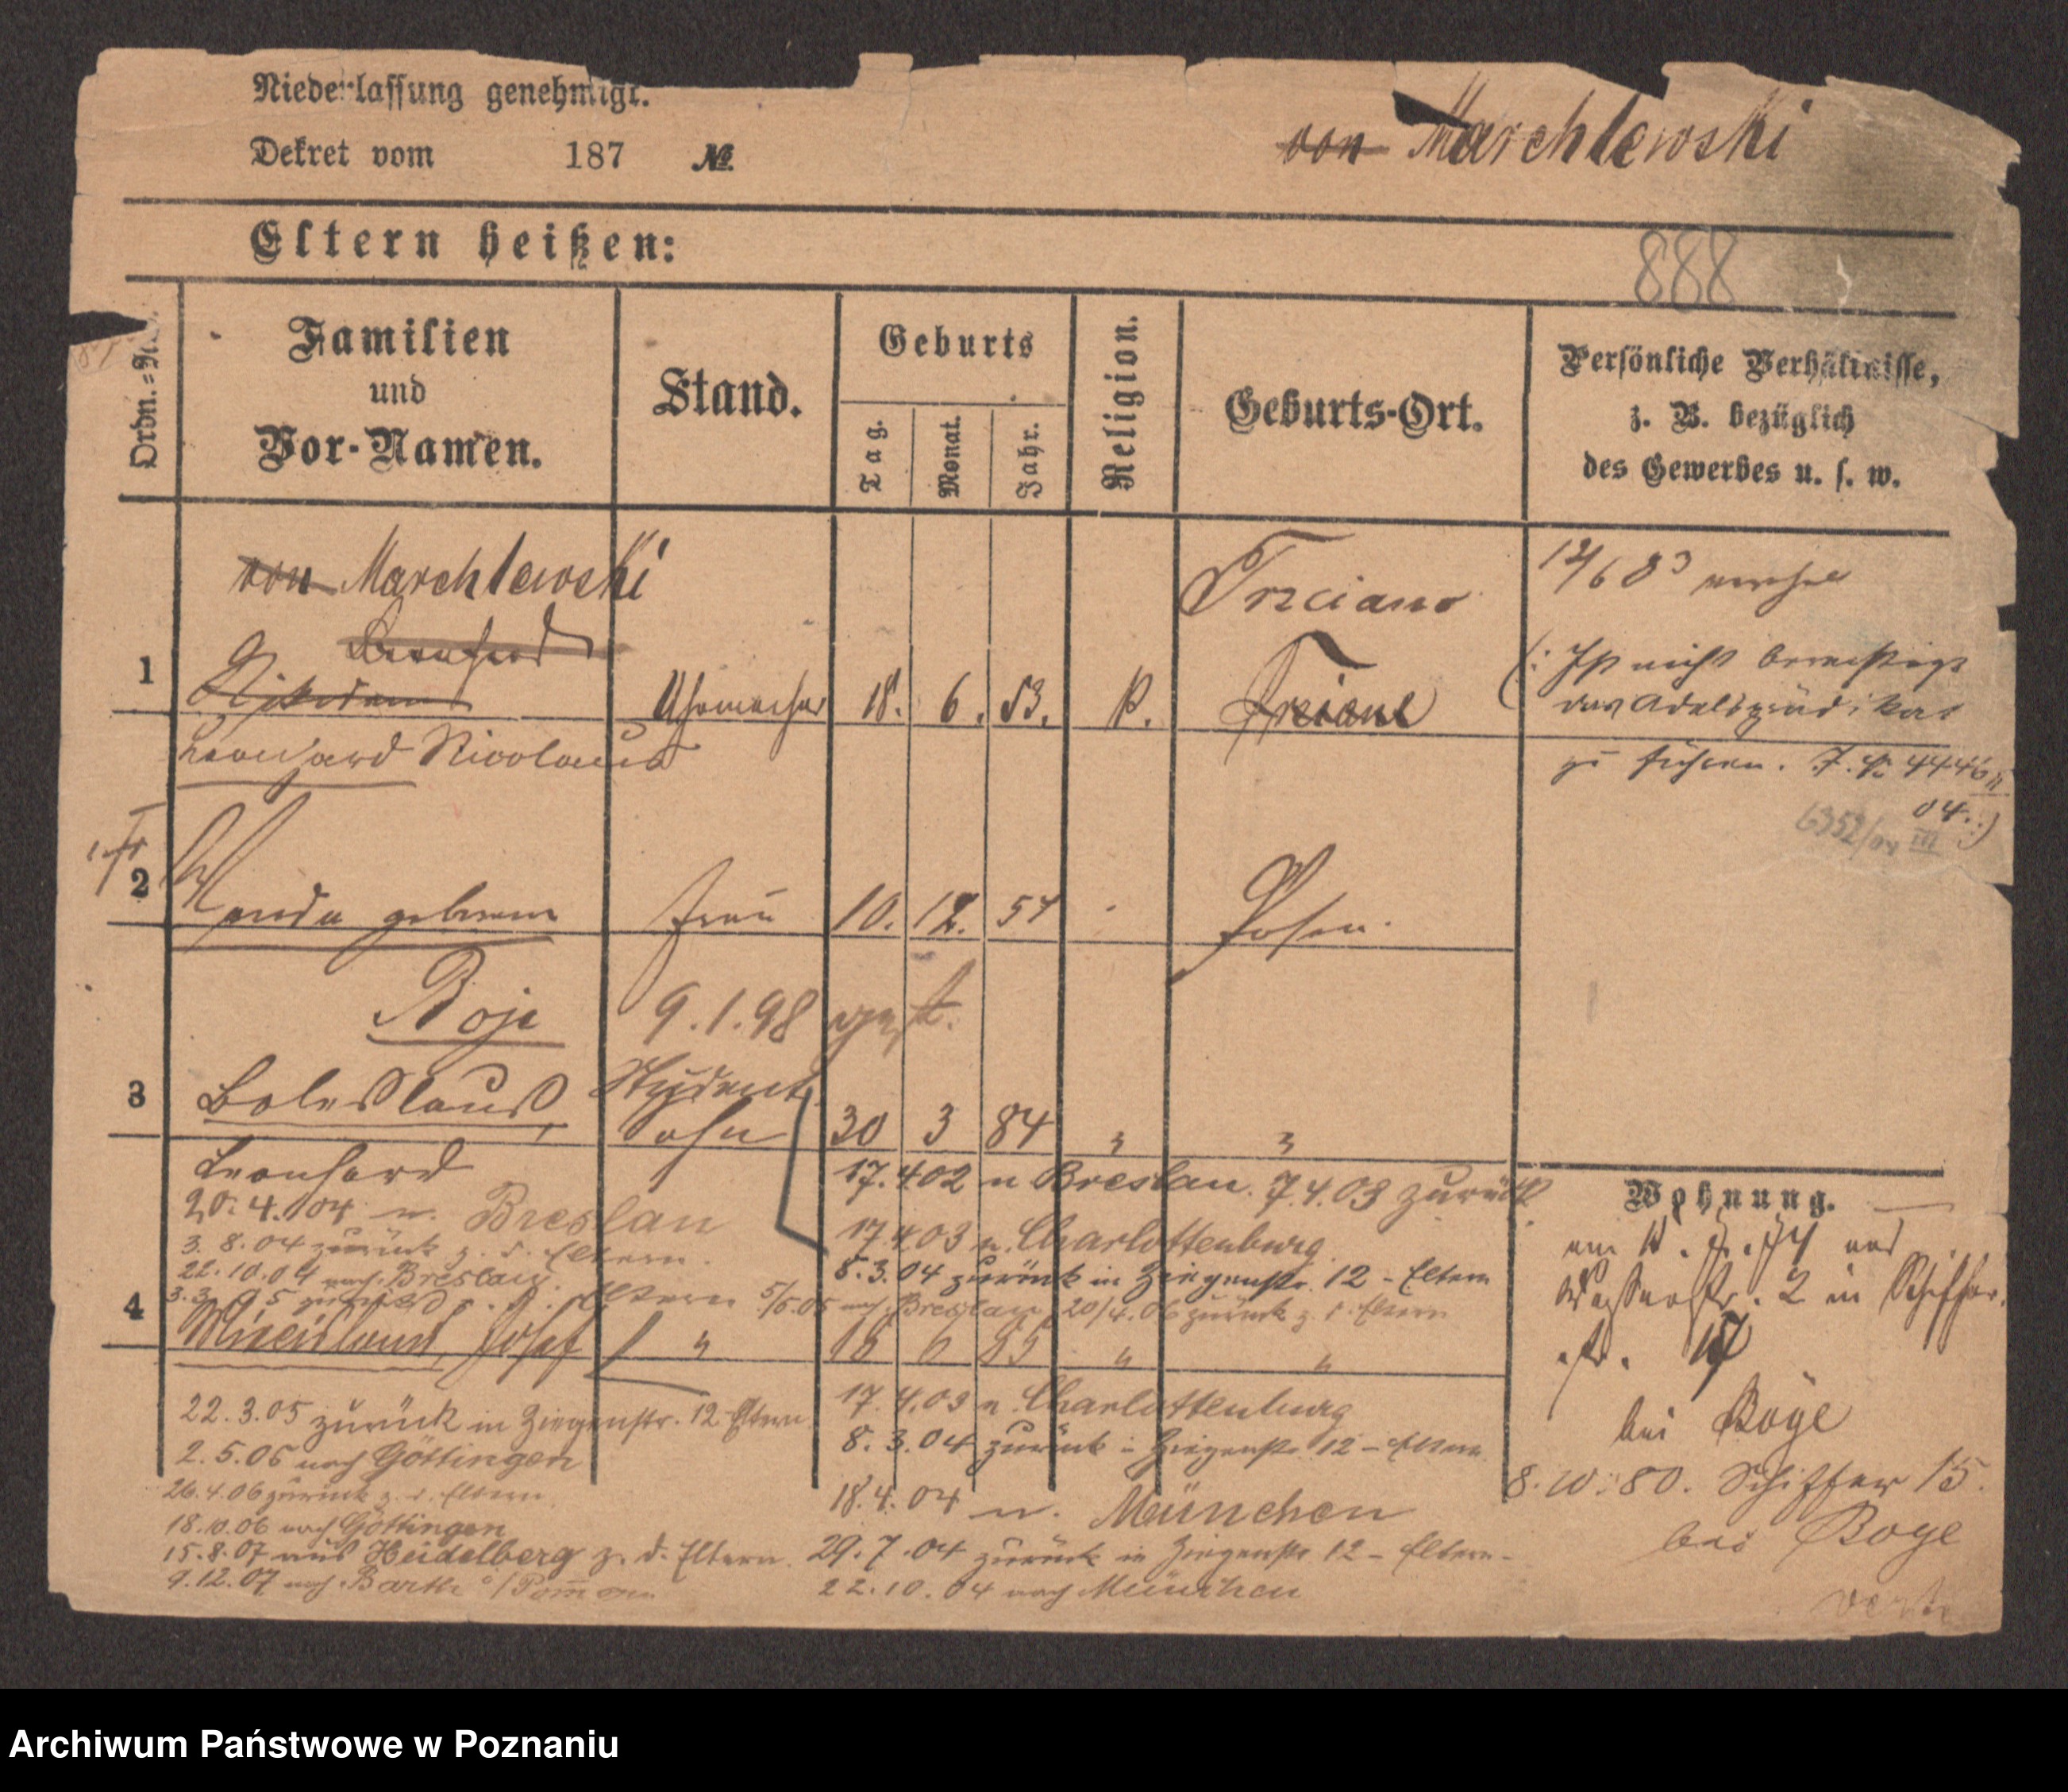 Niederlassung genehmigt.
Dekret vom 187 №
von Marchlewski
Eltern heißen:
888
Ordn.=N
Familien
und
Vor-Namen.
Stand.
Geburts
Tag.
Monat.
Jahr.
Religion.
Geburts-Ort.
Persönliche Verhältnisse,
z. B. bezüglich
des Gewerbes u. s. w.
von Marchlewski
Trzciano
12/6 83
Bernhard
1
Uhrmacher 18. 6. 53. K.
(: Ist nicht berechtigt
das Adelsprädikat
Leonhard Nicolaus
zu führen. 4446
04.:)
6352/04 III
2 Wanda geborene Frau 10. 12. 57 Posen.
Boje
9.1.98 gest.
3 Boleslaus, Student Sohn 30 3 84 " "
Leonhard
17.4.02 n Breslau. 7.4.03 zurück
Wohnung.
20.4.04 n. Breslau
17.4.03 n. Charlottenburg
3.8.04 zurück z. d. Eltern.
8.3.04 zurück in Ziegenstr. 12 - Eltern
22.10.04 nach Breslau.
zurück z. d. Eltern 5/5.05 nach Breslau 20/4.06 zurück z. d. Eltern
Wasserstr. 2 in Schiffer
str. 17
4 Miecislaus, Josef " 18 6 85 " "
bei Boye
22.3.05 zurück in Ziegenstr. 12 Eltern
17.4.03 n Charlottenburg
8.3.04 zurück in Ziegenstr. 12 - Eltern
2.5.05 nach Göttingen
8.10.80. Schiffer 15.
26.4.06 zurück z. d. Eltern
18.4.04 n. München
bei Boye
18.10.06 nach Göttingen
15.8.07 aus Heidelberg z. d. Eltern.
29.7.04 zurück in Ziegenstr 12 - Eltern -
9.12.07 nach Barth i/Pommern
22.10.04 nach München
Archiwum Państwowe w Poznaniu